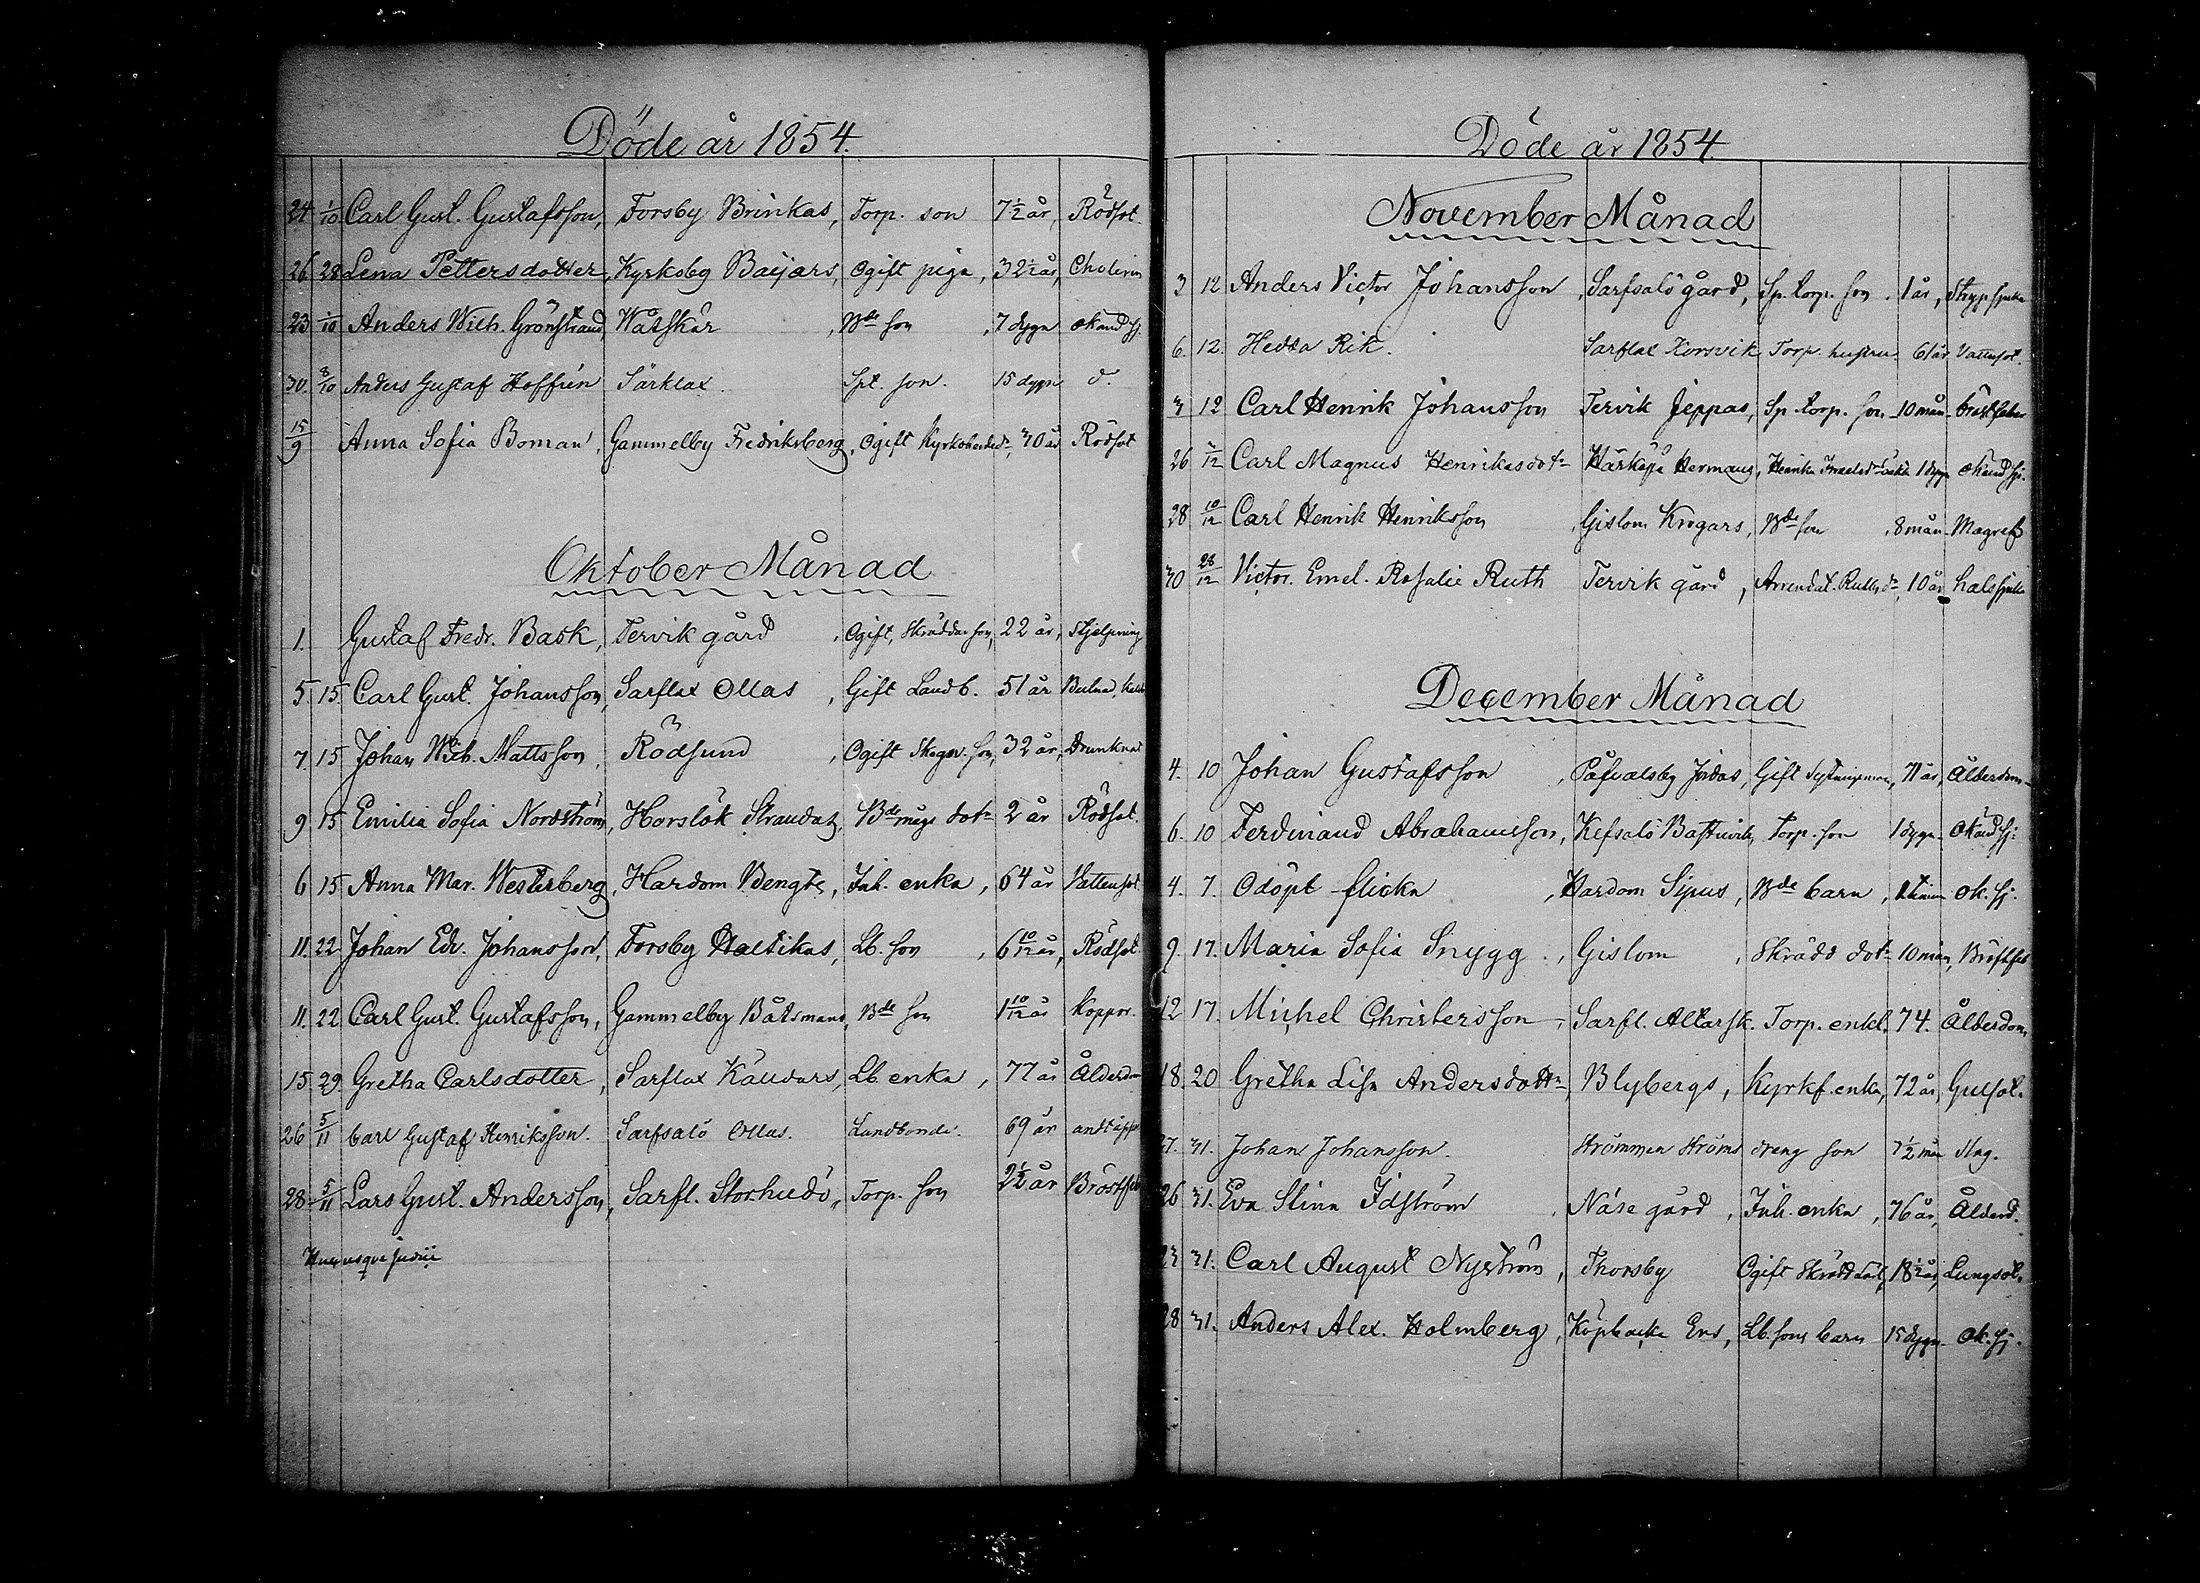 Döde år 1854.
24 1/10 Carl Gust. Gustafsson, Forsby Brinkas, Torp. son 7 1/2 år, Rödsot.
26 28 Lena Pettersdotter, Kyrkoby Baijars, Ogift piga, 32 1/2 år, Cholerin
23 1/10 Anders Wilh. Grönstrand, Wåtskär, Bde son, 7 dygn okänd sj.
30. 8/10 Anders Gustaf Hoffrén Särklax. Spt. son. 15 dygn d.
15/9 Anna Sofia Boman, Gammelby Fredriksberg, Ogift 30 år Rödsot
Oktober Månad
1. Gustaf Fredr. Bask, Tervik gård, Ogift, Skräddar son, 22 år,
5. 15. Carl Gust. Johansson, Sarflax Ollas, Gift Landb. 51 år
7. 15 Johan Wilh. Mattsson, Rödsund, Ogift Skogv. son, 32 år, Drunknat
9 15 Emilia Sofia Nordström, Horslök Strandas, Bde mågs dotr 2 år Rödsot.
6 15 Anna Mar. Westerberg, Hardom Bengts, Inh. enka, 64 år Vattensot.
11. 22 Johan Edv. Johansson, Forsby Lb. son, 6 10/12 år, Rödsot
11. 22 Carl Gust. Gustafsson, Gammelby Båtsmans, Bde son 1 10/12 år Koppor.
15 29. Gretha Carlsdotter, Sarflax Käudars, Lb. enka, 77 år Ålderdom
26 5/11 Carl Gustaf Henriksson. Sarfsalö Ollas. Landbonde. 69 år andtäppa
28 5/11 Lars Gust. Andersson, Sarfl. Storhudö, Torp. son 2 1/2 år Bröstfeb
Döde år 1854.
November Månad
3 12 Anders Victor Johansson, Sarfsalö gård, Sp. torp. son, 1 år, Strypsjuka
6. 12. Hedda Rik. Sarflax Korsvik Torp. hustru. 61 år Vattusot.
3 12 Carl Henrik Johansson Tervik Jeppas, Sp. torp. son 10 mån. bröstfeber
26 3/12 Carl Magnus Henrikasdotr Härkäpä Hermans, Henrika 1 dygn okänd sj.
28 10/12 Carl Henrik Henriksson, Gislom Krogars, Bde son, 8 mån. Magref
30 28/12 Victor. Emel. Rosalie Ruth Tervik gård, Arrendat. Ruths dr, 10 år halssjuka
December Månad
4. 10 Johan Gustafsson, Påfvalsby Jordas, Gift Sytningsman, 71 år, Ålderdom
6. 10 Ferdinand Abrahamsson, Kefsalö Bastuvik, Torp. son 1 dygn. okänd sj:
4. 7. Odöpt flicka, Hardom Sipus, Bde barn, 1 timme ok. sj.
9. 17. Maria Sofia Snygg., Gislom, Skrädd dotr 10 mån, Bröstfeb
12 17. Michel Christersson, Sarfl. Altarsk. Torp. enkl. 74. Ålderdom,
18. 20 Gretha Lisa Andersdottr, Blybergs, Kyrkf. enka, 72 år, Gulsot.
27. 31. Johan Johansson. Strömmen Ströms dreng son 7 1/2 mån Slag.
26 31. Eva Stina Idström, Näse gård, Inh. enka, 76 år, Ålderd.
23 31. Carl August Nyström, Thorsby Ogift Skrädd lärl. 18 1/2 år, Lungsot.
28 31. Anders Alex. Holmberg, Köpbacka Ers, Lb. sons barn 15 dygn. ok. sj.